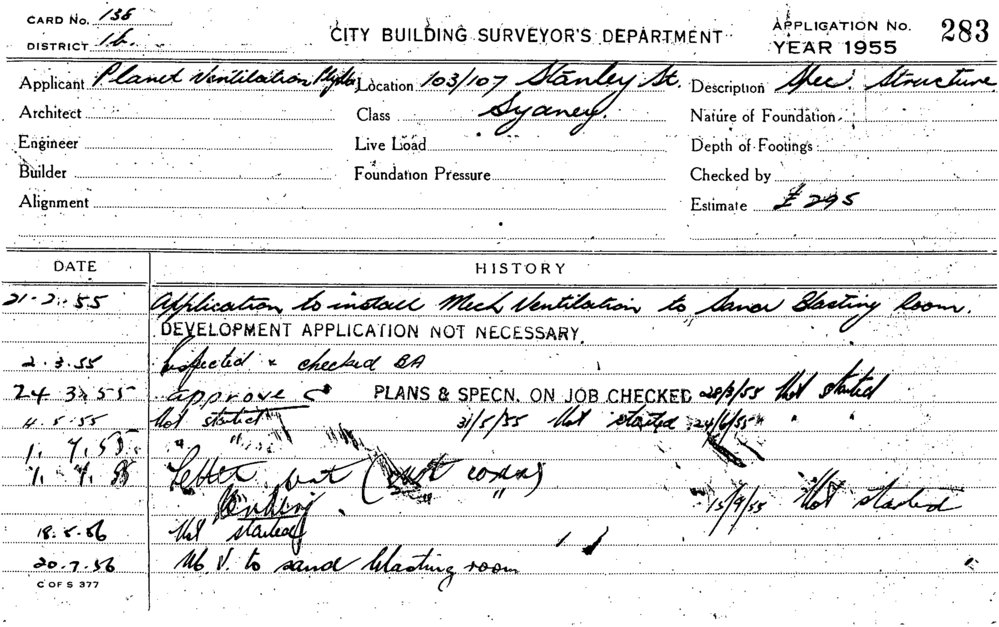 CARD No. 138
DISTRICT 1b.
CITY BUILDING SURVEYOR'S DEPARTMENT
APPLICATION No. 283
YEAR 1955
Applicant Planet Ventilation Location 103/107 Stanley St. Description Spec. Structure
Architect Class Sydney. Nature of Foundation
Engineer Live Load Depth of Footings
Builder Foundation Pressure Checked by
Alignment Estimate £295
DATE HISTORY
21-2-55 Application to install Mech Ventilation to Sand Blasting Room.
DEVELOPMENT APPLICATION NOT NECESSARY.
2.3.55 Inspected & checked BA
24 3.55 approve PLANS & SPECN. ON JOB CHECKED 28/3/55 Not started
4.5.55 Not started 31/5/55 Not started 24/6/55 " "
1. 7.55
1. 7. 55 Letter sent (not comm)
15/9/55 Not started
18.5.56 Not started
20.7.56 M. V. to sand blasting room
C OF S 377